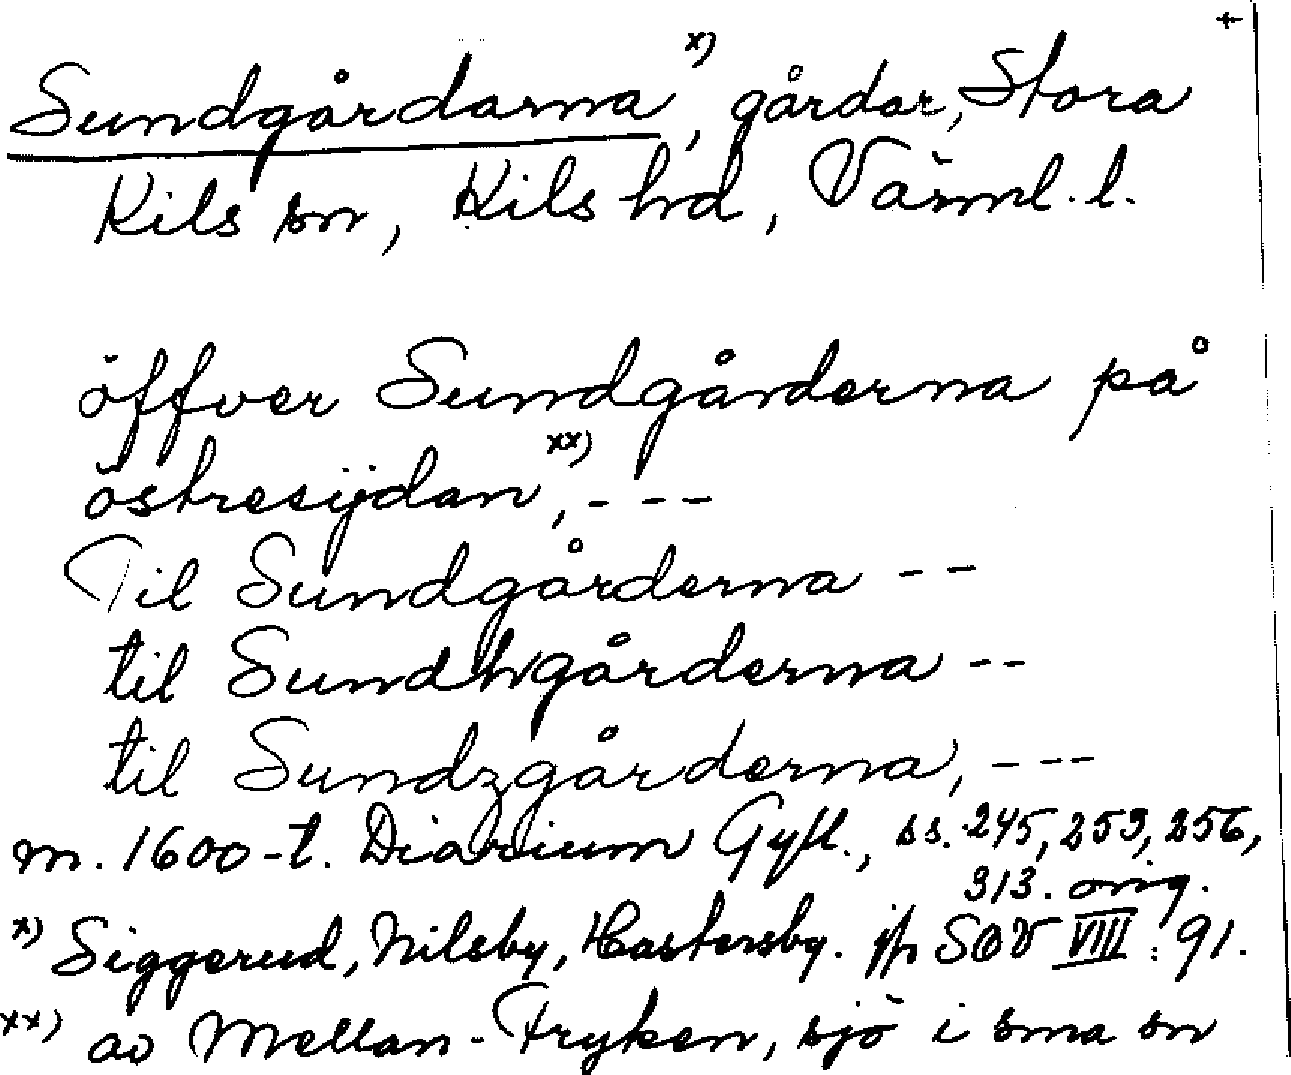 +
Sundgårdarna x), gårdar, Stora
Kils sn, Kils hd, Värml. l.
öffver Sundgårderna på
östresijdan xx), - - -
Til Sundgårderna - -
til Sundhgårderna - -
til Sundzgårderna, - - -
m. 1600-t. Diarium Gyll., ss. 245, 253, 256,
313. orig.
x) Siggerud, Nilsby, Hastersby. jfr SOV VIII: 91.
xx) av Mellan-Fryken, sjö i sma sn